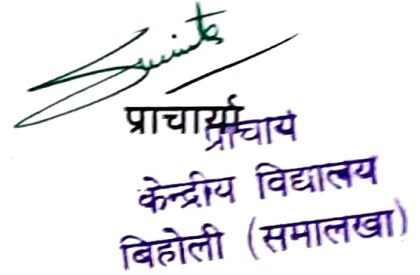 Sunita
प्राचार्या
प्राचार्य
केन्द्रीय विद्यालय
बिहोली (समालखा)